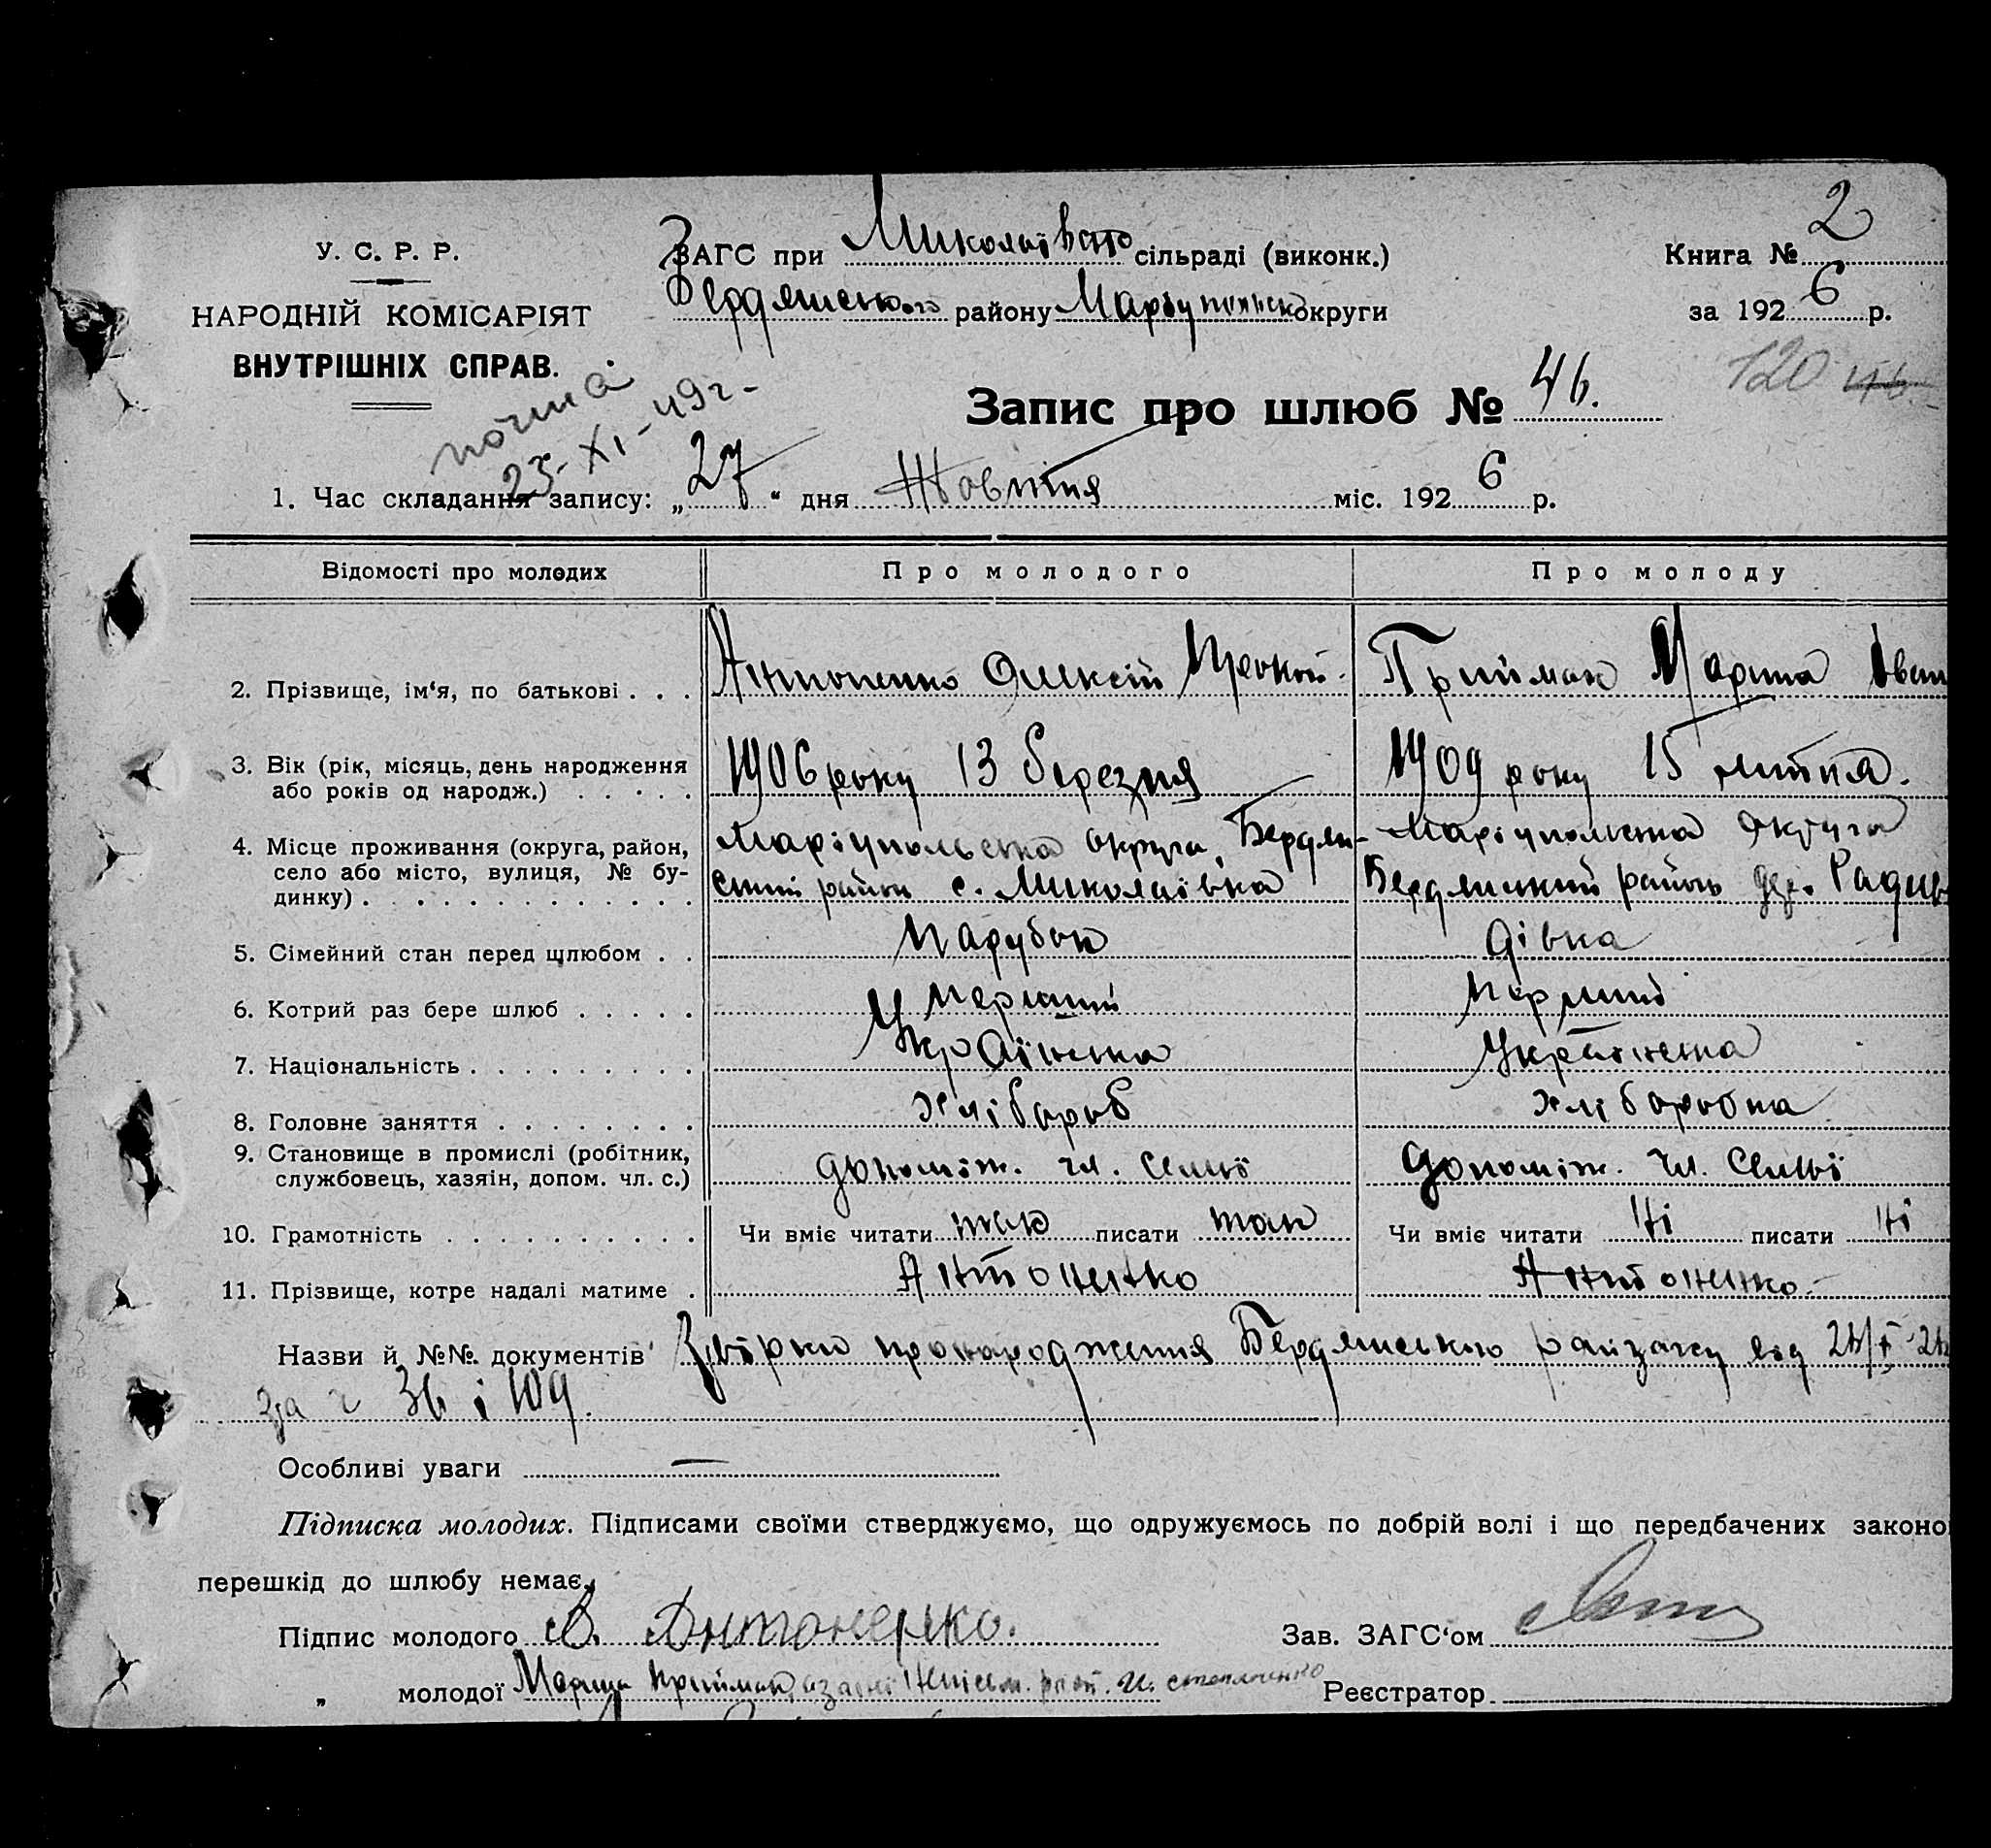 У. С. Р. Р.
НАРОДНІЙ КОМІСАРІЯТ
ВНУТРІШНІХ СПРАВ.
ЗАГС при Миколаївсько сільраді (виконк.)
Бердянського району Маріупольськ округи
Книга № 2
за 1926 р.
почта
23-XI-49 г-
Запис про шлюб № 46.
120 46.
1. Час складання запису: „27“ дня Жовтня міс. 1926 р.
Відомості про молодих
Про молодого
Про молоду
2. Прізвище, ім‘я, по батькові . . . Антоненко Олексій
Приймак Марина Іван
3. Вік (рік, місяць, день народження
або років од народж.) . . . . . 1906 року 13 березня
1909 року 15 липня.
4. Місце проживання (округа, район,
село або місто, вулиця, № бу-
динку) . . . . . . . . . . . . .
Маріупольська округа, Бердян-
ський район с. Миколаївка
Маріупольська округа
Бердянський район дер. Радив
5. Сімейний стан перед шлюбом . . парубок дівка
6. Котрий раз бере шлюб . . . . . перший перший
7. Національність . . . . . . . . . . Українська Українська
8. Головне заняття . . . . . . . . хлібороб хліборобка
9. Становище в промислі (робітник,
службовець, хазяїн, допом. чл. с.) допоміж. чл. семьї допоміж. чл. семьї
10. Грамотність . . . . . . . . . . Чи вміє читати так писати так Чи вміє читати ні писати ні
11. Прізвище, котре надалі матиме . Антоненко Антоненко.
Назви й №№ документів про народження Бердянського райзагсу від
за ч 36 і 109.
Особливі уваги —
Підписка молодих. Підписами своїми стверджуємо, що одружуємось по добрій волі і що передбачених законо
перешкід до шлюбу немає.
Підпис молодого А. Антоненко.
Зав. ЗАГС‘ом
„ молодої Марина Приймак, а за неї
Реєстратор